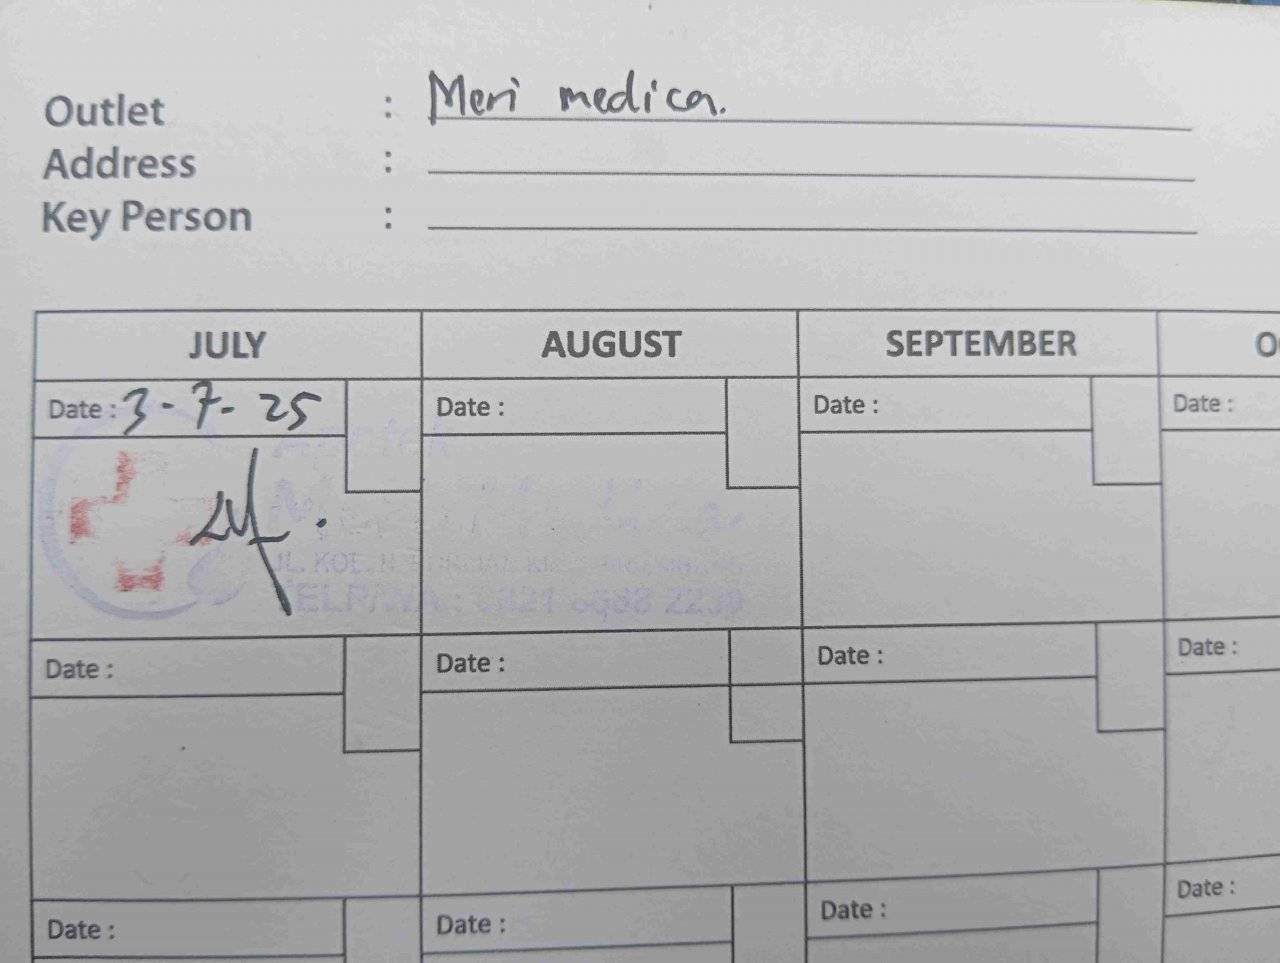 Outlet : Meri medica.
Address :
Key Person :
JULY AUGUST SEPTEMBER
Date : 3-7-25 Date : Date : Date :
Apotek
JL. KOL. H.
TELP/WA :
Date : Date : Date : Date :
Date : Date : Date : Date :